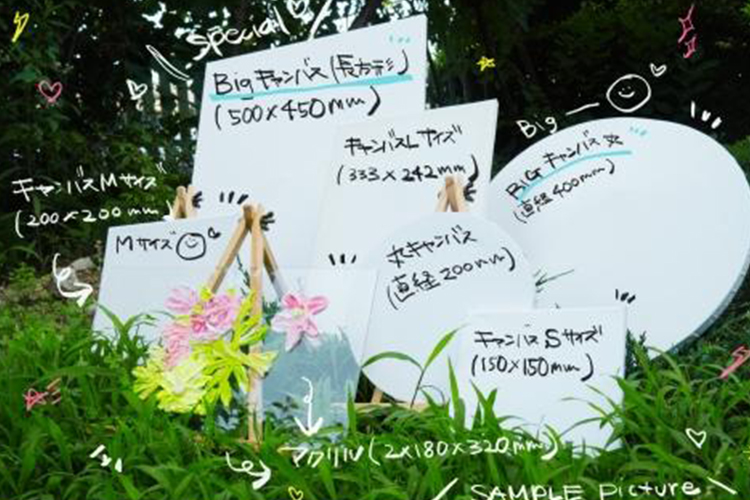 Special
Bigキャンバス(長方形)
(500×450mm)
キャンバスLサイズ
(333×242mm)
Big
BIGキャンバス丸
(直径400mm)
キャンバスMサイズ
(200×200mm)
Mサイズ
丸キャンバス
(直径200mm)
キャンバスSサイズ
(150×150mm)
アクリル(2×180×320mm)
SAMPLE Picture